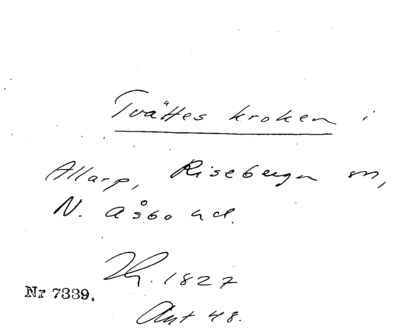 Tvättes kroken i
Allarp, Riseberga sn,
N. Åsbo hd.
Th. 1827
Nr 7339.
Ant 48.